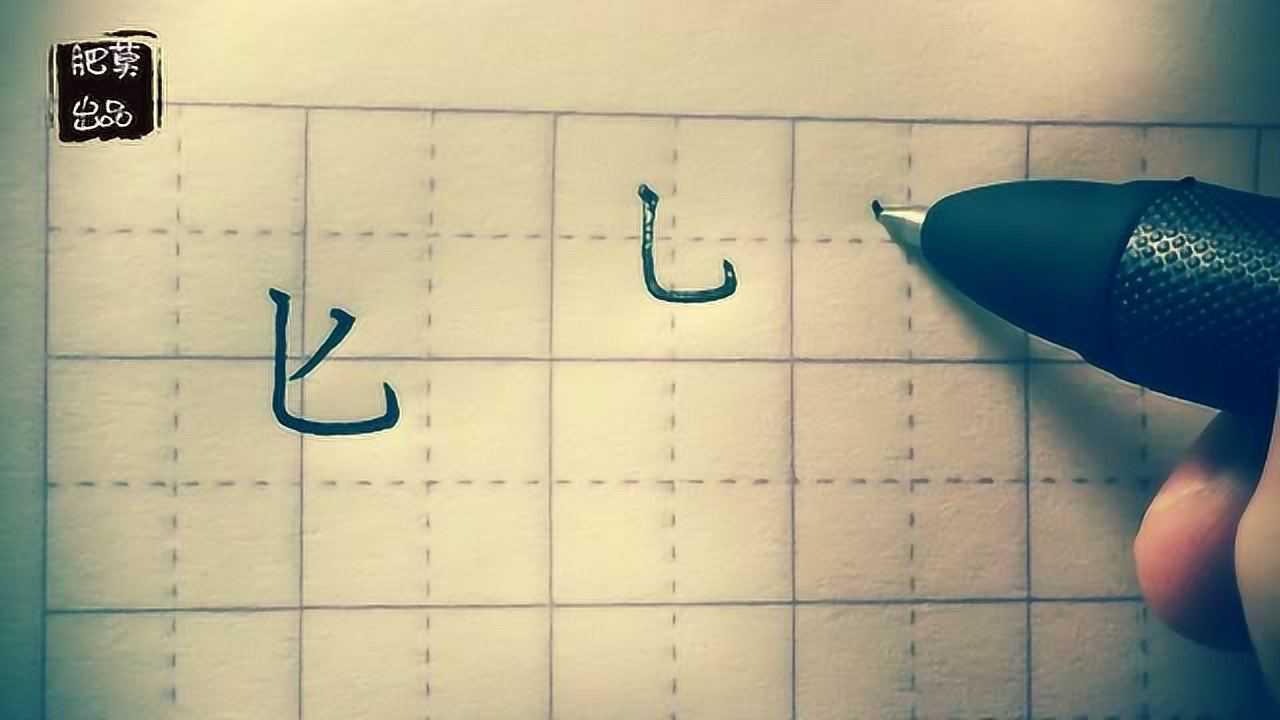 肥莫
出品
匕
乚